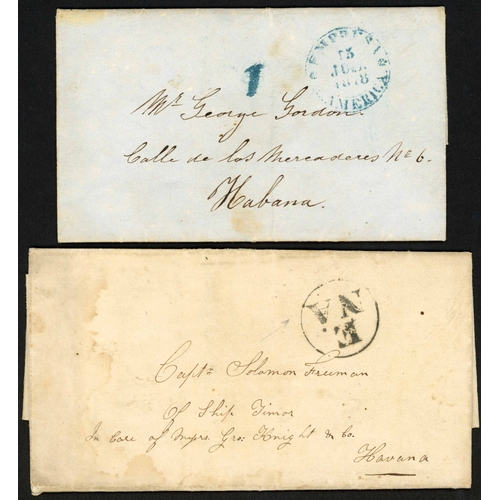 1
15
JUL.
AMERICA
Mr. George Gordon.
Calle de los Mercaderes No 6.
Habana.
NA
Captn Solomon Freeman
Of Ship Timor
In Care of Messrs. Geo: Knight & Co.
Havana